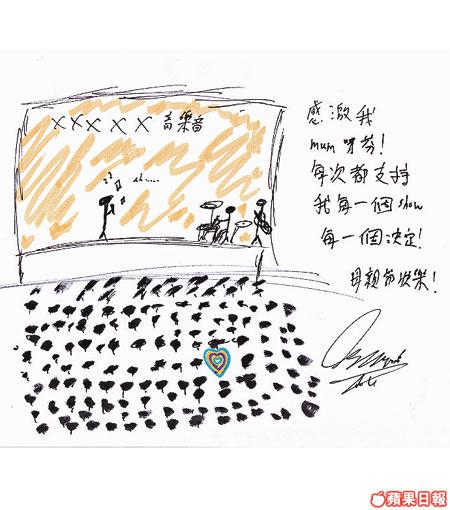 XXX X X 音樂音
感激我
mum 呀芬!
每次都支持
我每一個 show
每一個決定!
母親節快樂!
蘋果日報